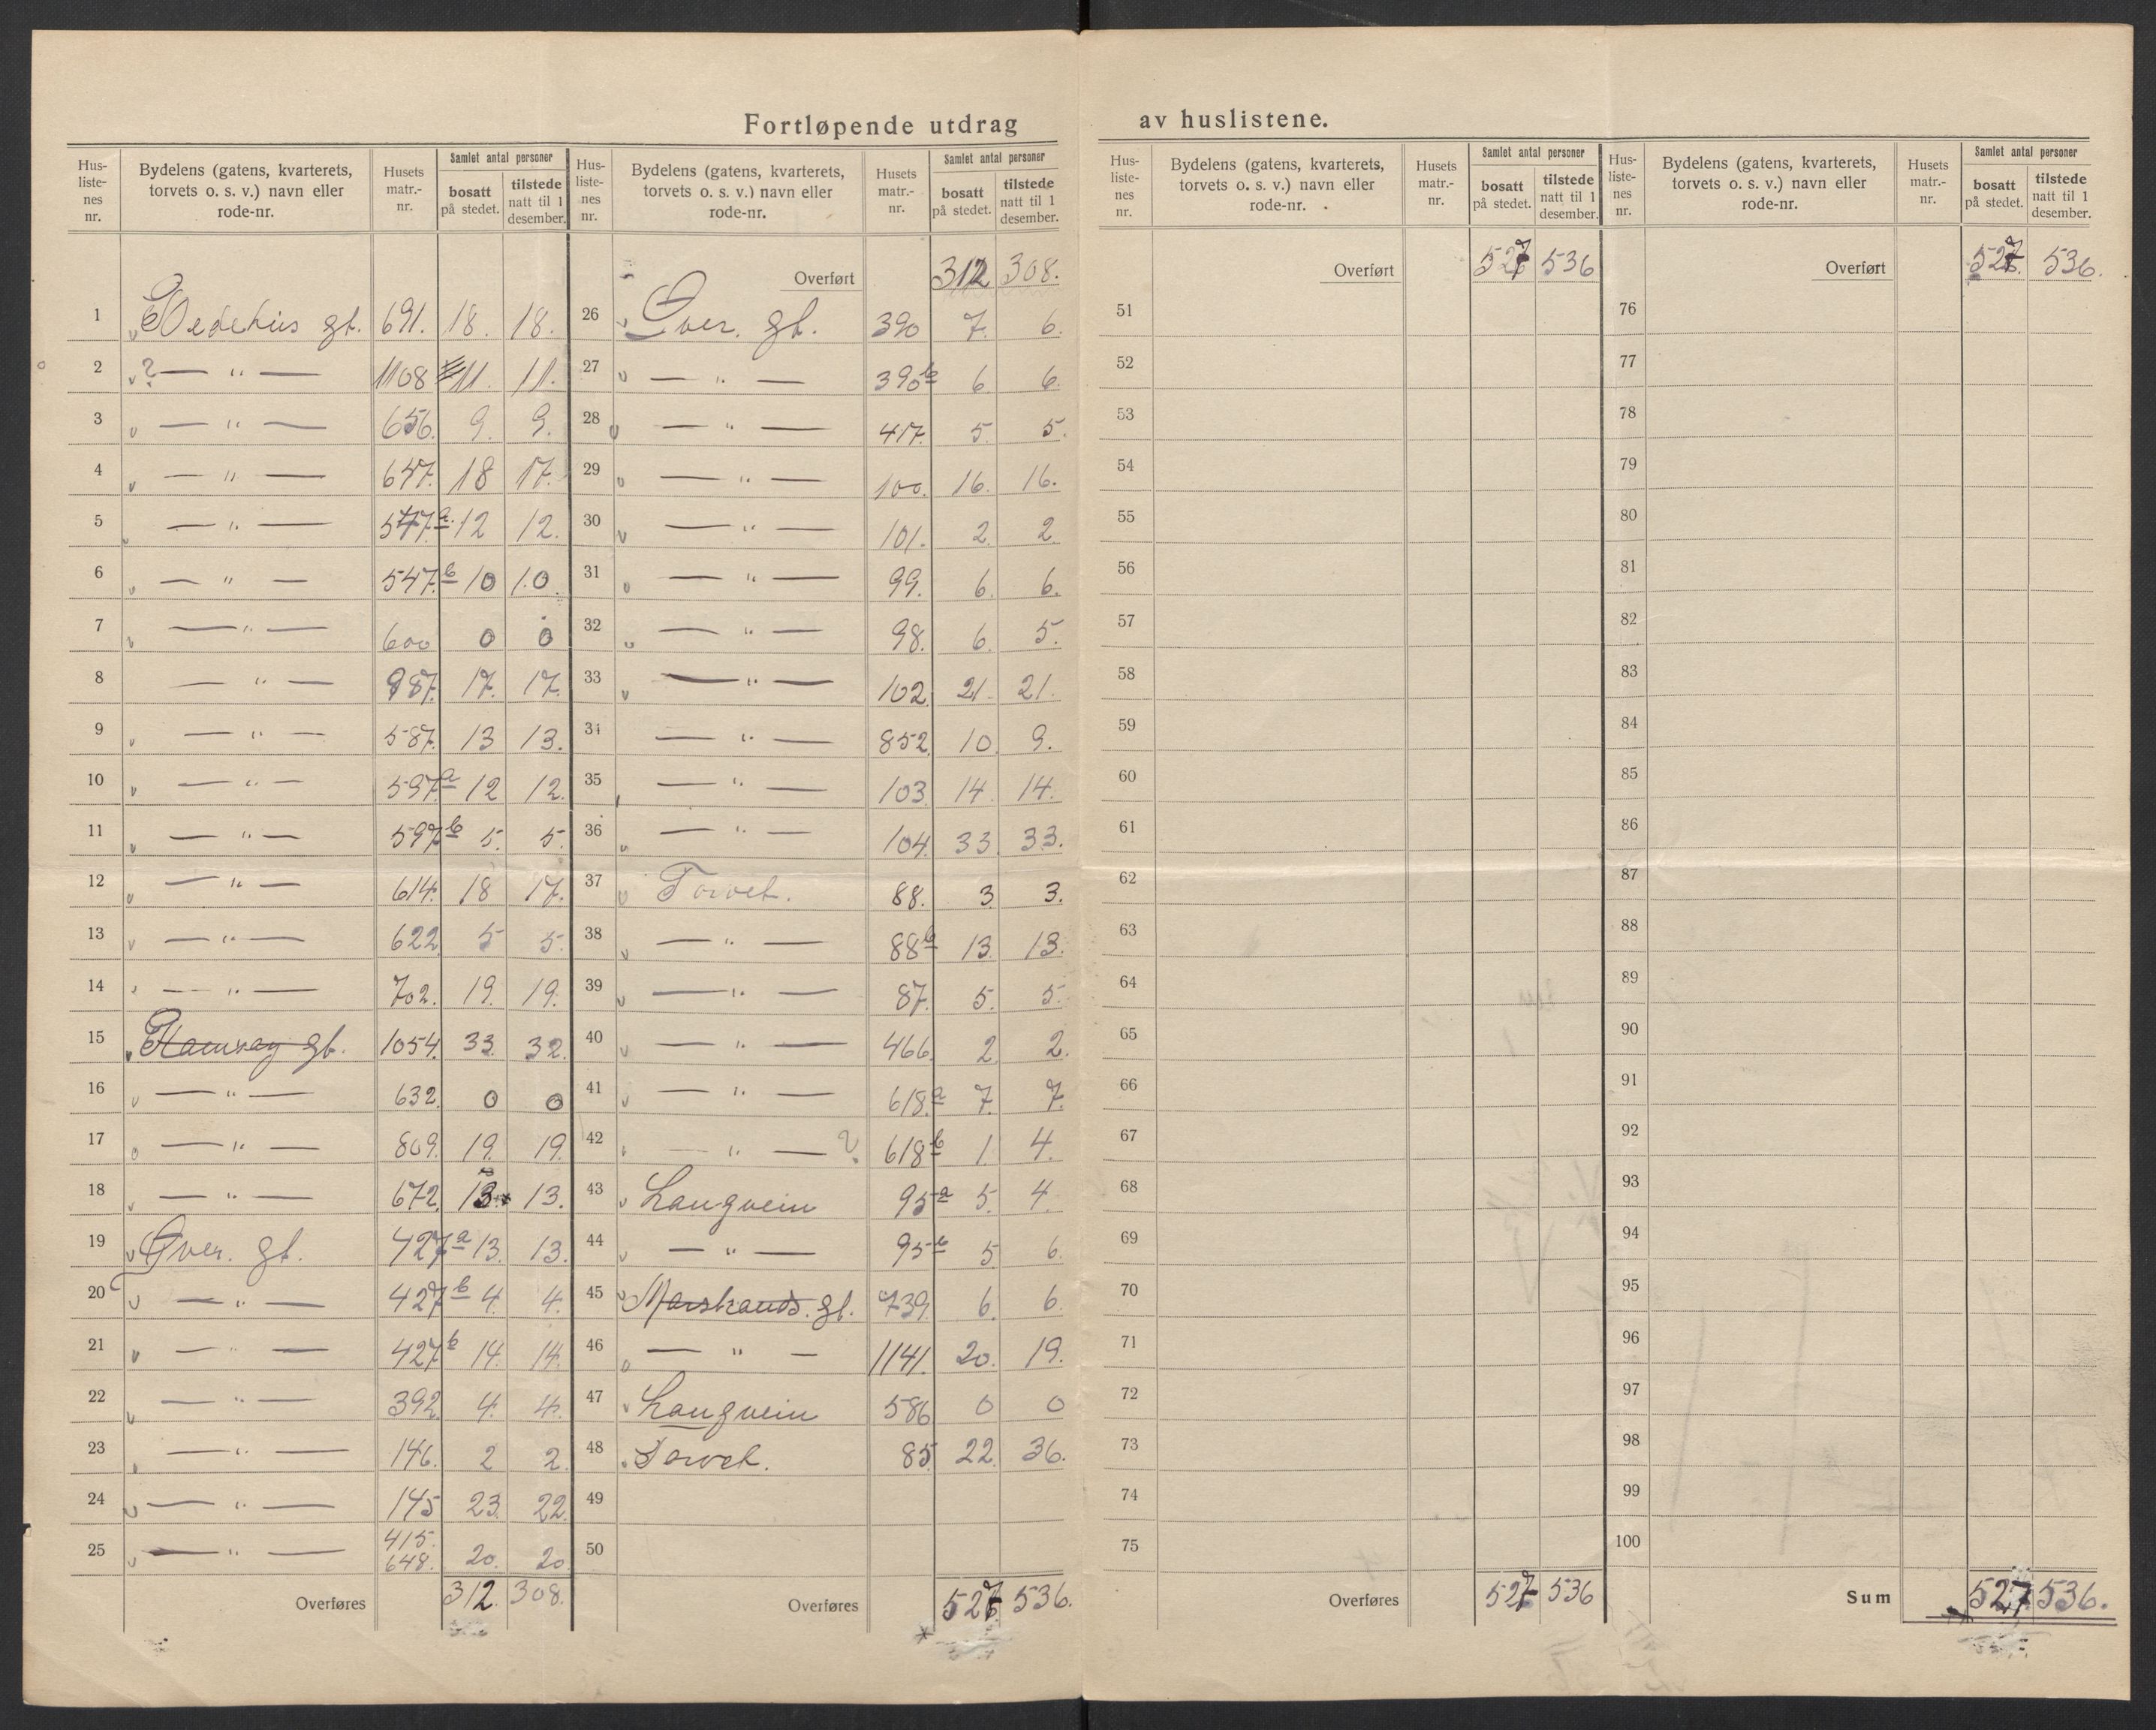 Fortløpende utdrag av huslistene.
Hus-liste-nes nr. | Bydelens (gatens, kvarterets, torvets o. s. v.) navn eller rode-nr. | Husets matr.-nr. | Samlet antal personer bosatt på stedet. | tilstede natt til 1 desember.
1 691. 18. 18.
2 ? — " — 1108 11. 11.
3 — " — 656. 9. 9.
4 — " — 647. 18 17.
5 — " — 547. a. 12 12.
6 — " — 547. b 10 10.
7 — " — 600 0 0
8 — " — 987. 17. 17.
9 — " — 587. 13 13.
10 — " — 597. a 12 12.
11 — " — 597 b 5. 5.
12 — " — 614. 18 17.
13 — " — 622 5 5.
14 — " — 702. 19. 19.
15 Ramsay gt. 1054. 33. 32.
16 — " — 632. 0 0
17 — " — 809. 19. 19.
18 — " — 672. 13. 13.
19 Øver. gt. 427 a 13. 13.
20 — " — 427 b 4. 4.
21 — " — 427 b 14. 14.
22 — " — 392 4. 4.
23 — " — 146. 2 2.
24 — " — 145 23. 22.
25 — " — 415. 648. 20. 20
Overføres 312. 308.
Hus-liste-nes nr. | Bydelens (gatens, kvarterets, torvets o. s. v.) navn eller rode-nr. | Husets matr.-nr. | Samlet antal personer bosatt på stedet. | tilstede natt til 1 desember.
Overført 312 308.
26 Øver. gt. 390 7. 6.
27 — " — 390 b 6 6.
28 — " — 417. 5. 5.
29 — " — 100. 16. 16.
30 — " — 101. 2. 2.
31 — " — 99. 6. 6.
32 — " — 98. 6. 5.
33 — " — 102. 21. 21.
34 — " — 852. 10. 9.
35 — " — 103. 14. 14.
36 — " — 104. 33. 33.
37 Torvet. 88. 3. 3.
38 — " — 88 b 13. 13.
39 — " — 87. 5. 5.
40 — " — 466. 2 2.
41 — " — 618. a 7. 7.
42 — " — ? 618 b 1. 4.
43 Langvein 95 a 5. 4.
44 — " — 95 b 5. 6.
45 Marstrands. gt. 739. 6. 6.
46 — " — 1141. 20. 19.
47 Langvein 586 0 0
48 Torvet. 85 22. 36.
49
50
Overføres 527 536.
Hus-liste-nes nr. | Bydelens (gatens, kvarterets, torvets o. s. v.) navn eller rode-nr. | Husets matr.-nr. | Samlet antal personer bosatt på stedet. | tilstede natt til 1 desember.
Overført 527 536
51
52
53
54
55
56
57
58
59
60
61
62
63
64
65
66
67
68
69
70
71
72
73
74
75
Overføres 527 536
Hus-liste-nes nr. | Bydelens (gatens, kvarterets, torvets o. s. v.) navn eller rode-nr. | Husets matr.-nr. | Samlet antal personer bosatt på stedet. | tilstede natt til 1 desember.
Overført 527. 536.
76
77
78
79
80
81
82
83
84
85
86
87
88
89
90
91
92
93
94
95
96
97
98
99
100
Sum 527 536.